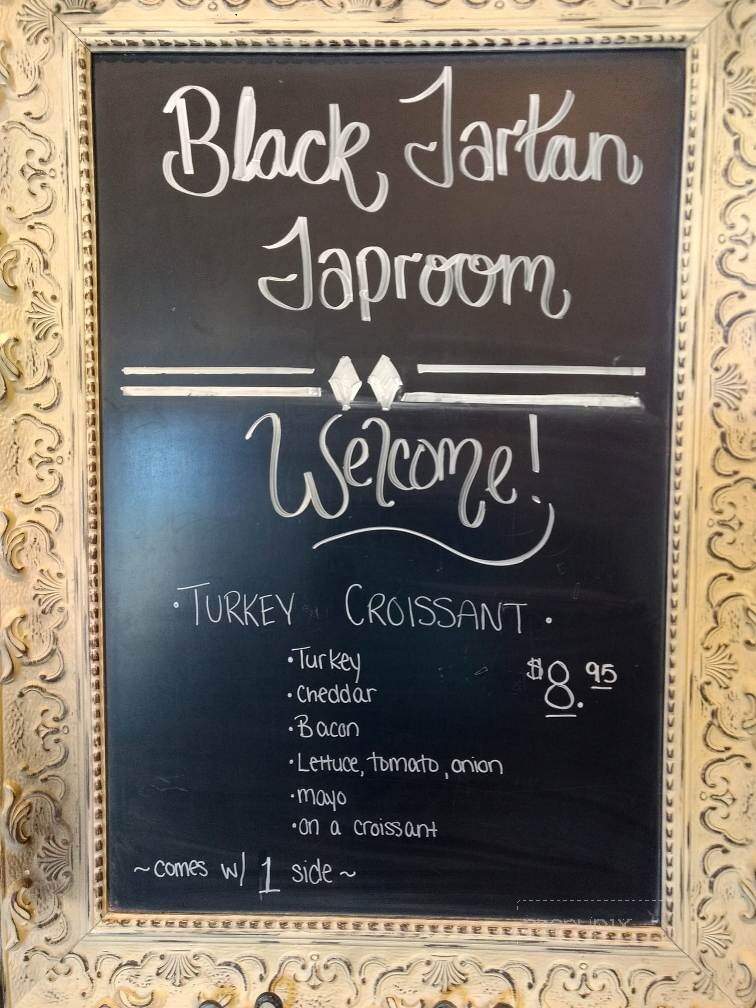 Black Tartan
Taproom
Welcome!
• TURKEY CROISSANT •
• Turkey
• Cheddar
• Bacon
• Lettuce, tomato, onion
• mayo
• on a croissant
$8.95
~comes w/ 1 side~